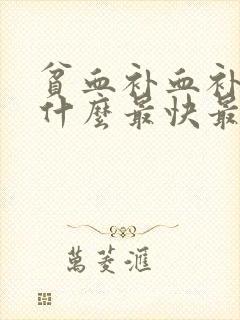 贫血补血补
什麼最快最
萬菱滙